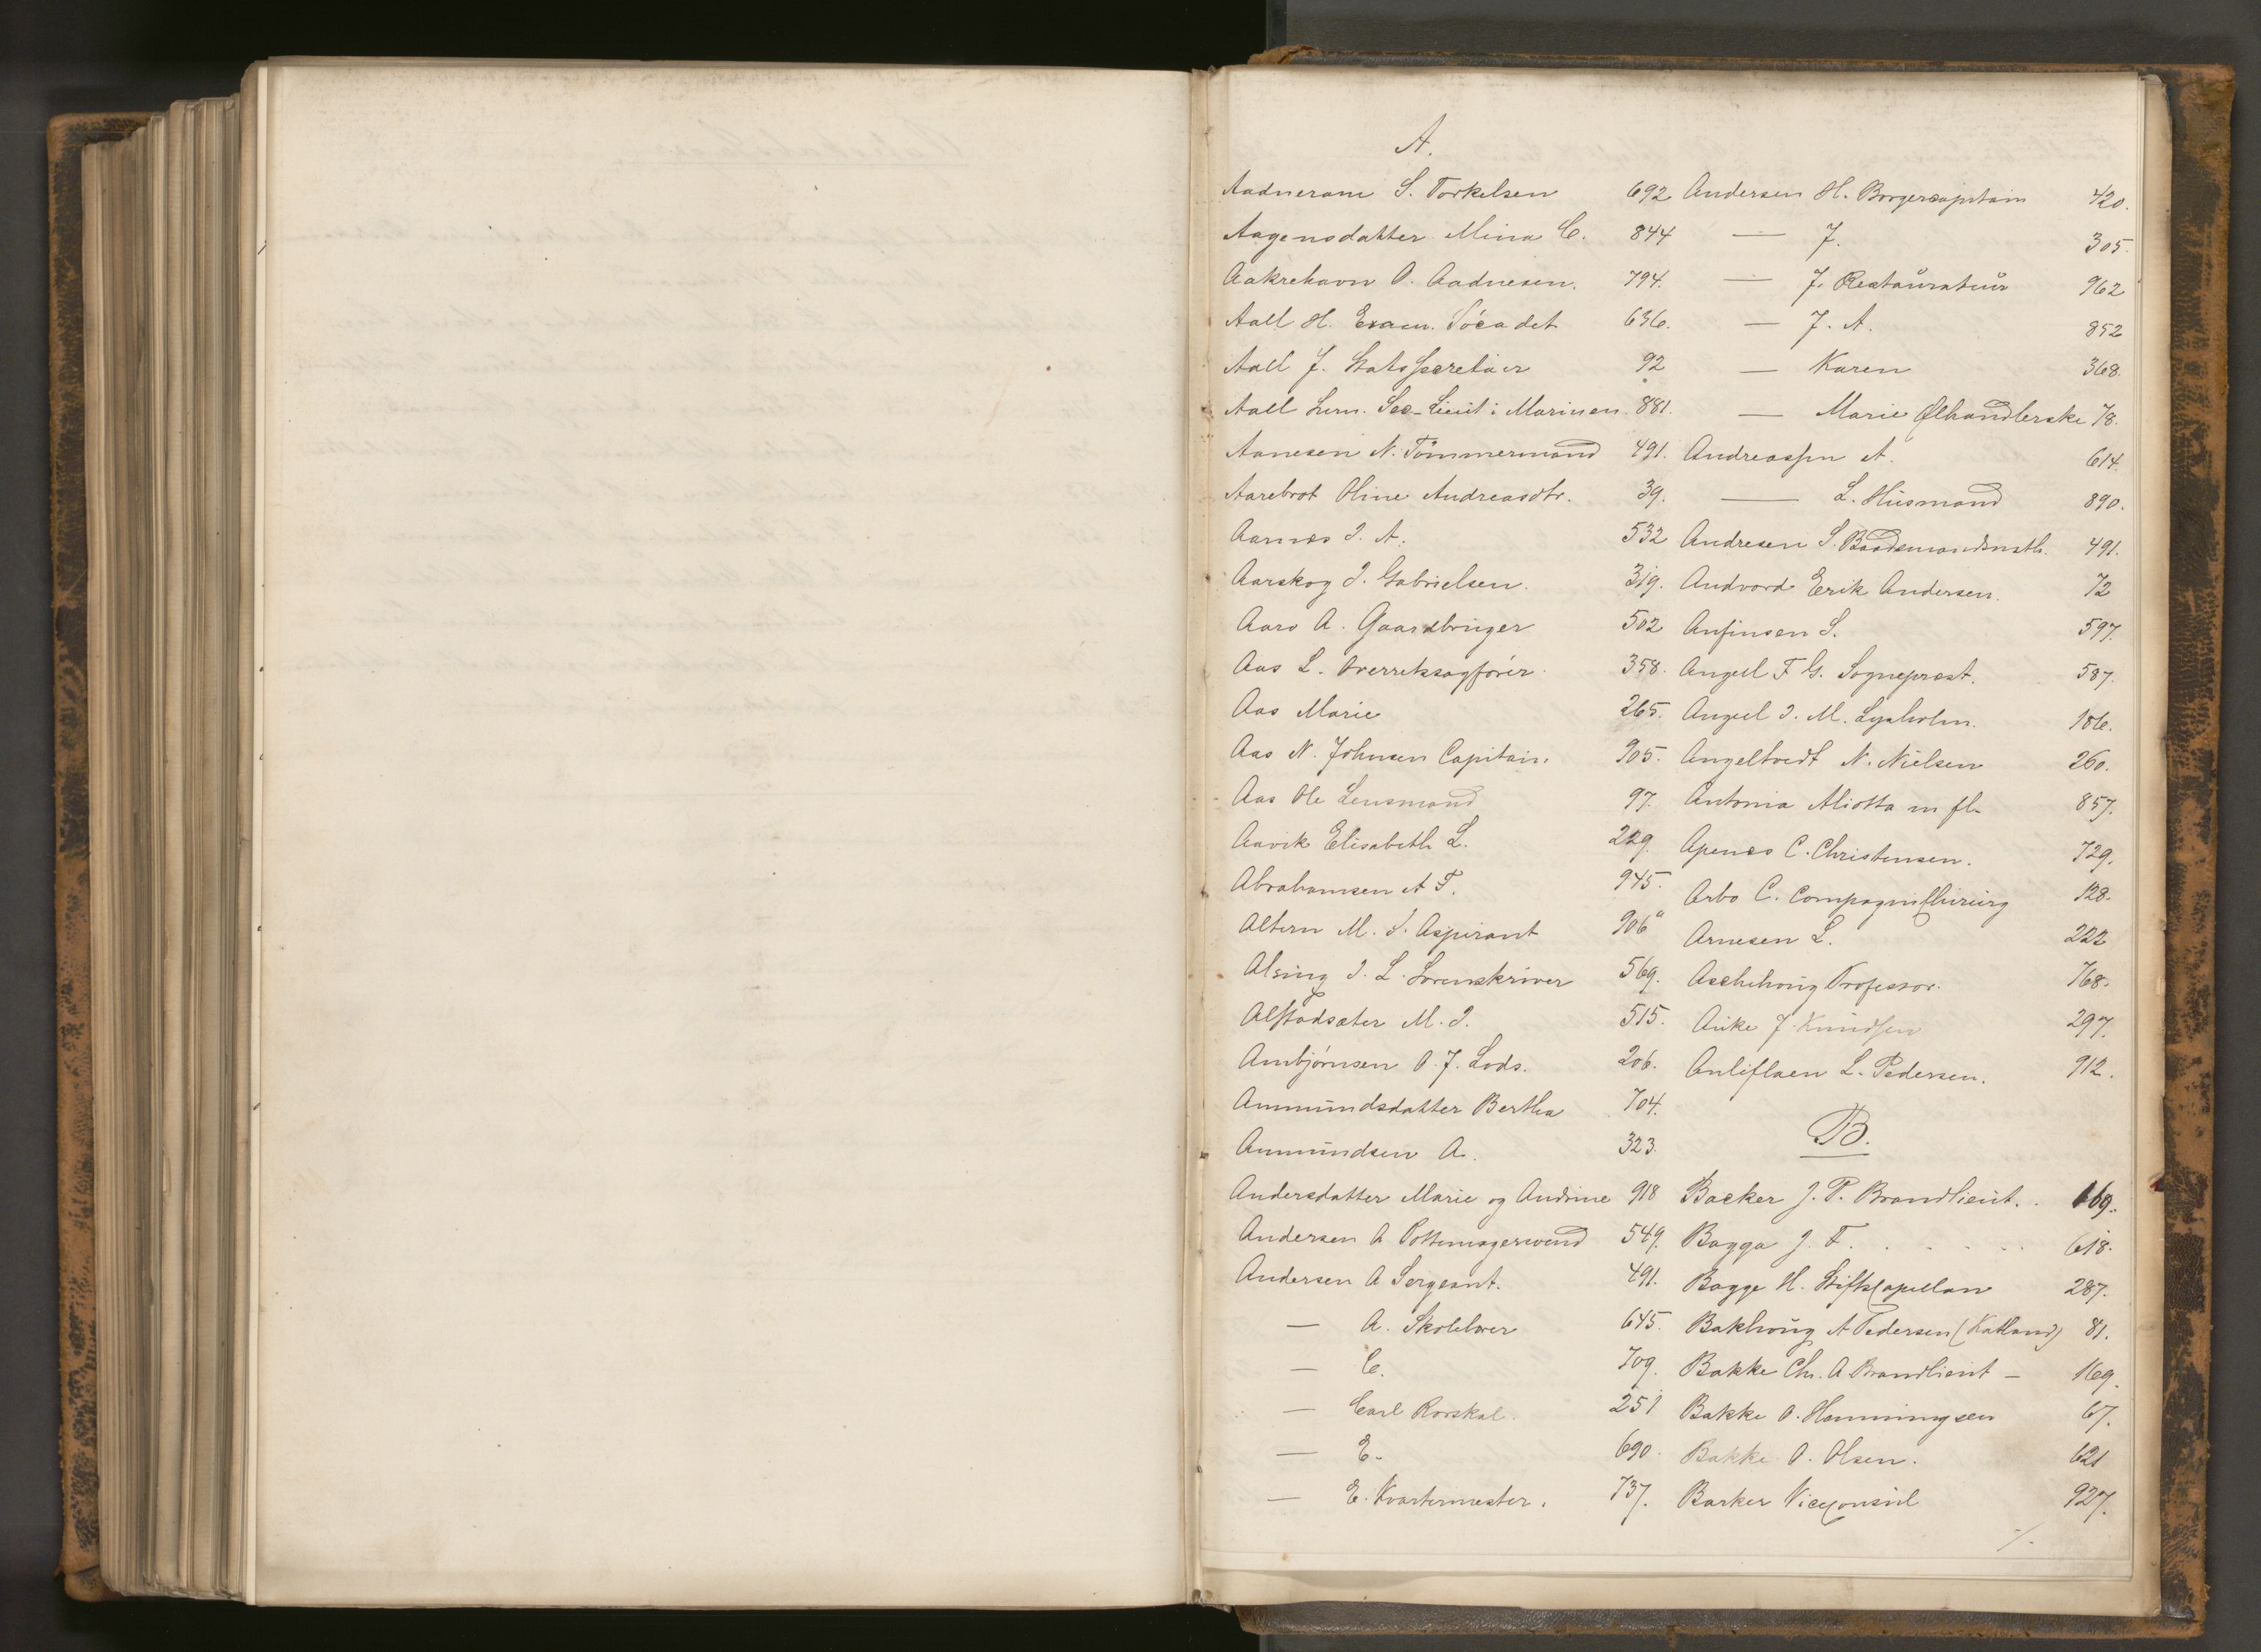 A.
Aadneram S. Torkelsen 692
Aagensdatter Mina C. 844
Aakrehavn O. Aadnesen. 794.
Aall H. Exam. Söcadet 636.
Aall J. Statssecretair 92
Aall Sec-Lieut i Marinen 881.
Aanesen N. Tömmermand 491.
Aarebrot Oline Andreasdtr. 39.
Aarnes I. A. 532
Aarskog I. Gabrielsen. 319.
Aarø A. Gaardbruger 502
Aas L. Overretssagförer. 358.
Aas Marie 265.
Aas N. Johnsen Capitain. 905.
Aas Ole Lensmand 97.
Aavik Elisabeth L. 229.
Abrahamsen A F. 945.
Altern M. S. Aspirant 906a
Alsing I. L. Sorenskriver 569.
Alstadsæter M. I. 515.
Ambjörnsen O. J. Lods. 206.
Ammundsdatter Bertha 704.
Ammundsen A. 323.
Andersdatter Marie og Andrine 918
Andersen A Pottemagersvend 549.
Andersen A Sergeant. 491.
— A. Skolelærer 645.
— C. 709.
— Carl Rorskal. 251
— E. 690.
— E. Kvartermester. 737.
Andersen H. Borgercapitain 420.
— J. 305.
— J. Restauratör 962
— J. A. 852
— Karen 368.
— Marie Ølhandlerske 78.
Andreassen A. 614.
— L. Husmand 890.
Andresen S. Baadsmandsmath. 491.
Andvord Erik Andersen. 72
Anfinsen S. 597.
Angell F G. Sogneprest. 587.
Angell I. M. Lysholm. 106.
Angeltvedt N. Nielsen 260.
Antonia Aliotta m fl. 857.
Apenes C. Christensen. 729.
Arbo C. Compagnichirurg 128.
Arnesen L. 222
Aschehoug Professor. 768.
Auke J. Knudsen 297.
Aulifloen L. Pedersen. 912.
B.
Backer J. P. Brandlieut. 169.
Bagga J. F. 618.
Bagge H. Stiftscapellan 287.
Bakhoug A Pedersen (Katland) 81.
Bakke Chr. A Brandlieut — 169.
Bakke O. Hanningsen 67.
Bakke O. Olsen. 621
Barker Viceconsul 927.
./.